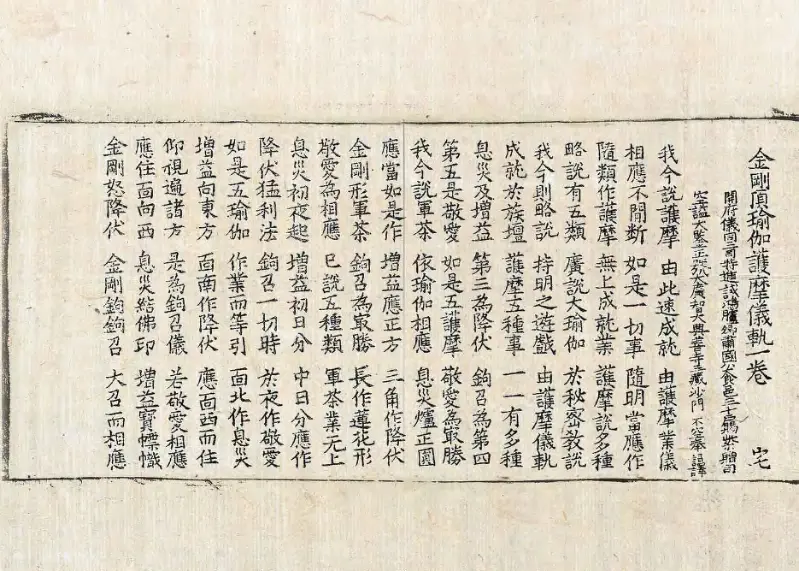 金剛頂瑜伽護摩儀軌一卷 宅
開府儀同三司特進試鴻臚卿肅國公食邑三千戶賜紫贈司
空謚大鑒正號大廣智大興善寺三藏沙門 不空奉 詔譯
我今說護摩 由此速成就 由護摩業儀
相應不間斷 如是一切事 隨明當應作
隨類作護摩 無上成就業 護摩說多種
略說有五類 廣說大瑜伽 於秘密教說
我今則略說 持明之遊戲 由護摩儀軌
成就於族壇 護摩五種事 一一有多種
息災及增益 第三為降伏 鉤召為第四
第五是敬愛 如是五護摩 敬愛為冣勝
我今說軍荼 依瑜伽相應 息災爐正圓
應當如是作 增益應正方 三角作降伏
金剛形軍荼 鉤召為冣勝 長作蓮花形
敬愛為相應 已說五種類 軍荼業无上
息災初夜起 增益初日分 中日分應作
降伏猛利法 鉤召一切時 於夜作敬愛
如是五瑜伽 作業而等引 面北作息災
增益向東方 面南作降伏 應面西而住
仰視遍諸方 是為鉤召儀 若敬愛相應
應住面向西 息災結佛印 增益寶幖幟
金剛怒降伏 金剛鉤鉤召 大召而相應